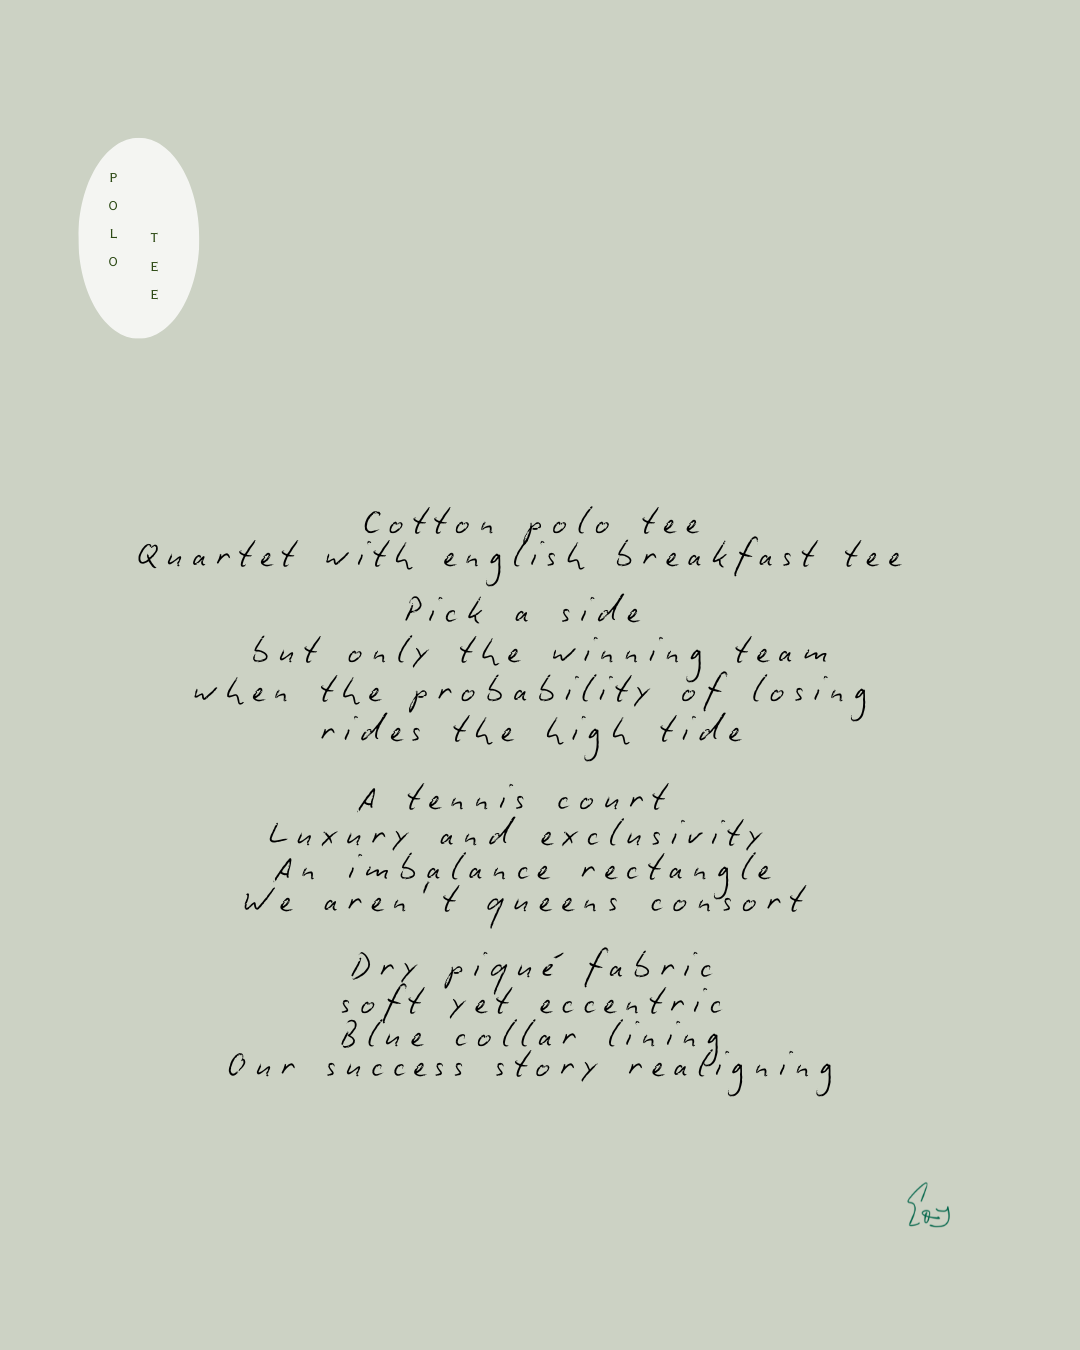 POLO
TEE
Cotton polo tee
Quartet with english breakfast tee
Pick a side
but only the winning team
when the probability of losing
rides the high tide
A tennis court
Luxury and exclusivity
An imbalance rectangle
We aren't queens consort
Dry piqué fabric
soft yet eccentric
Blue collar lining
Our success story realigning